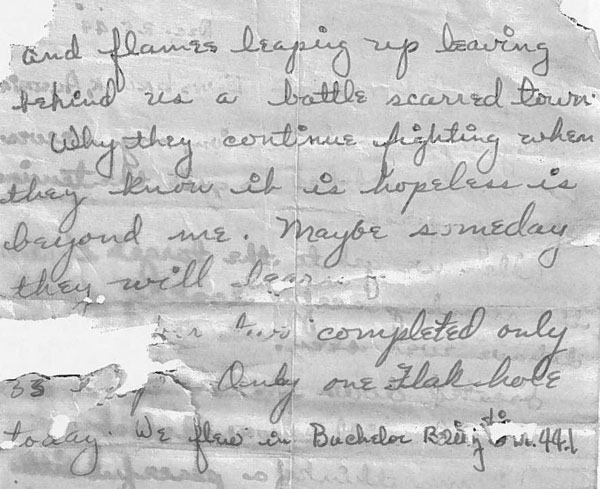 and flames leaping up leaving
behind us a battle scarred town.
Why they continue fighting when
they know it is hopeless is
beyond me. Maybe someday
they will learn
completed only
33 Only one Flak hole
today. We flew in Bachelor